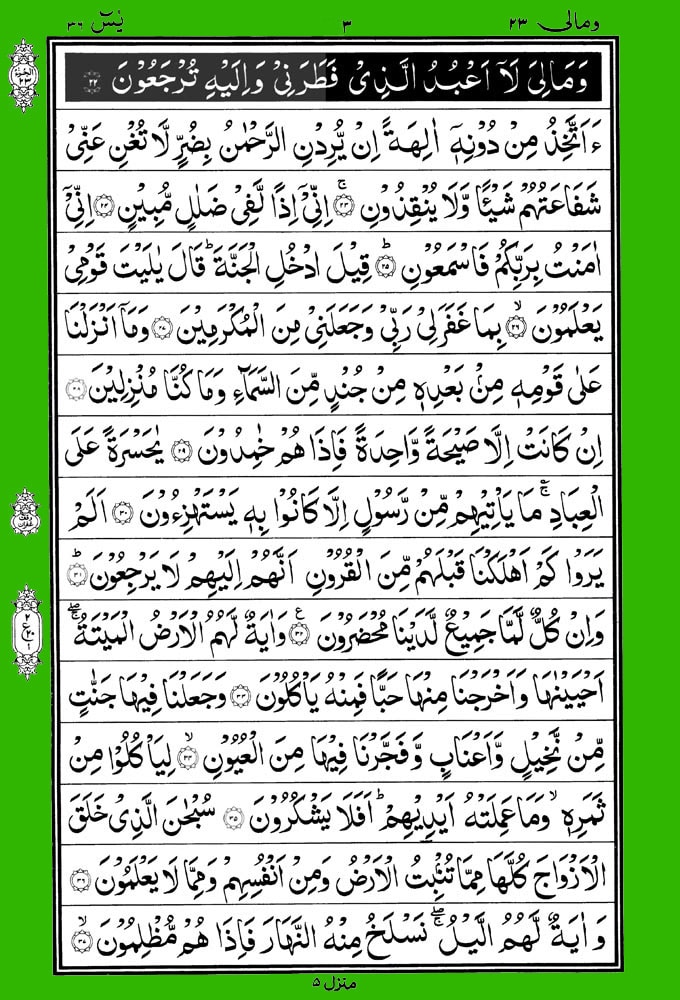 ومالی ۲۳ ۳ یٰسٓ ۳۶
وَمَا لِیَ لَاۤ اَعْبُدُ الَّذِیْ فَطَرَنِیْ وَاِلَیْهِ تُرْجَعُوْنَ ۲۲
ءَاَتَّخِذُ مِنْ دُوْنِهٖۤ اٰلِهَةً اِنْ یُّرِدْنِ الرَّحْمٰنُ بِضُرٍّ لَّا تُغْنِ عَنِّیْ
شَفَاعَتُهُمْ شَیْـًٔا وَّلَا یُنْقِذُوْنِ ۲۳ۚ اِنِّیْۤ اِذًا لَّفِیْ ضَلٰلٍ مُّبِیْنٍ ۲۴ اِنِّیْۤ
اٰمَنْتُ بِرَبِّكُمْ فَاسْمَعُوْنِ ۲۵ؕ قِیْلَ ادْخُلِ الْجَنَّةَؕ قَالَ یٰلَیْتَ قَوْمِیْ
یَعْلَمُوْنَ ۲۶ۙ بِمَا غَفَرَلِیْ رَبِّیْ وَجَعَلَنِیْ مِنَ الْمُكْرَمِیْنَ ۲۷ وَمَاۤ اَنْزَلْنَا
عَلٰی قَوْمِهٖ مِنْۢ بَعْدِهٖ مِنْ جُنْدٍ مِّنَ السَّمَآءِ وَمَا كُنَّا مُنْزِلِیْنَ ۲۸
اِنْ كَانَتْ اِلَّا صَیْحَةً وَّاحِدَةً فَاِذَا هُمْ خٰمِدُوْنَ ۲۹ یٰحَسْرَةً عَلَی
الْعِبَادِۚؔ مَا یَاْتِیْهِمْ مِّنْ رَّسُوْلٍ اِلَّا كَانُوْا بِهٖ یَسْتَهْزِءُوْنَ ۳۰ اَلَمْ
یَرَوْا كَمْ اَهْلَكْنَا قَبْلَهُمْ مِّنَ الْقُرُوْنِ اَنَّهُمْ اِلَیْهِمْ لَا یَرْجِعُوْنَ ۳۱ؕ
وَاِنْ كُلٌّ لَّمَّا جَمِیْعٌ لَّدَیْنَا مُحْضَرُوْنَ ۳۲ع وَاٰیَةٌ لَّهُمُ الْاَرْضُ الْمَیْتَةُۖۚ
اَحْیَیْنٰهَا وَاَخْرَجْنَا مِنْهَا حَبًّا فَمِنْهُ یَاْكُلُوْنَ ۳۳ وَجَعَلْنَا فِیْهَا جَنّٰتٍ
مِّنْ نَّخِیْلٍ وَّاَعْنَابٍ وَّفَجَّرْنَا فِیْهَا مِنَ الْعُیُوْنِ ۳۴ۙ لِیَاْكُلُوْا مِنْ
ثَمَرِهٖۙ وَمَا عَمِلَتْهُ اَیْدِیْهِمْؕ اَفَلَا یَشْكُرُوْنَ ۳۵ سُبْحٰنَ الَّذِیْ خَلَقَ
الْاَزْوَاجَ كُلَّهَا مِمَّا تُنْۢبِتُ الْاَرْضُ وَمِنْ اَنْفُسِهِمْ وَمِمَّا لَا یَعْلَمُوْنَ ۳۶
وَاٰیَةٌ لَّهُمُ الَّیْلُۖۚ نَسْلَخُ مِنْهُ النَّهَارَ فَاِذَا هُمْ مُّظْلِمُوْنَ ۳۷ۙ
منزل ۵